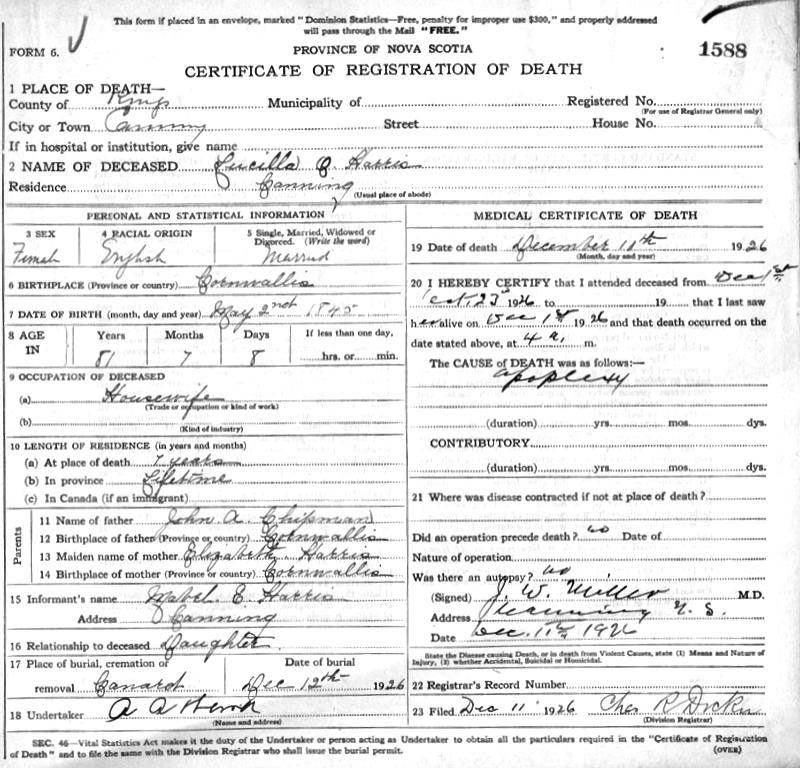 This form if placed in an envelope, marked "Dominion Statistics—Free, penalty for improper use $300," and properly addressed
will pass through the Mail "FREE."
FORM 6.
PROVINCE OF NOVA SCOTIA
1588
CERTIFICATE OF REGISTRATION OF DEATH
1 PLACE OF DEATH—
County of Kings Municipality of Registered No.
(For use of Registrar General only)
City or Town Canning Street House No.
If in hospital or institution, give name
2 NAME OF DECEASED Lucilla C. Harris
Residence Canning
(Usual place of abode)
PERSONAL AND STATISTICAL INFORMATION
3 SEX 4 RACIAL ORIGIN 5 Single, Married, Widowed or
Divorced. (Write the word)
Female English Married
6 BIRTHPLACE (Province or country) Cornwallis
7 DATE OF BIRTH (month, day and year) May 2nd 1845
8 AGE IN Years Months Days If less than one day,
81 7 8 hrs. or min.
9 OCCUPATION OF DECEASED
(a) Housewife
(Trade or occupation or kind of work)
(b)
(Kind of industry)
10 LENGTH OF RESIDENCE (in years and months)
(a) At place of death 7 years
(b) In province Lifetime
(c) In Canada (if an immigrant)
Parents
11 Name of father John A. Chipman
12 Birthplace of father (Province or country) Cornwallis
13 Maiden name of mother Elizabeth Harris
14 Birthplace of mother (Province or country) Cornwallis
15 Informant's name Mabel E Harris
Address Canning
16 Relationship to deceased Daughter
17 Place of burial, cremation or Date of burial
removal Canard Dec 12th 1926
18 Undertaker A A
(Name and address)
MEDICAL CERTIFICATE OF DEATH
19 Date of death December 11th 1926
(Month, day and year)
20 I HEREBY CERTIFY that I attended deceased from Dec 1st
Oct. 23 1926 to 19 that I last saw
her alive on Dec 1st 1926 and that death occurred on the
date stated above, at 4 a. m.
The CAUSE of DEATH was as follows:—
apoplexy
(duration) yrs. mos. dys.
CONTRIBUTORY
(duration) yrs. mos. dys.
21 Where was disease contracted if not at place of death?
Did an operation precede death? no Date of
Nature of operation
Was there an autopsy? no
(Signed) J. W. Miller M.D.
Address Canning N. S.
Date Dec. 11th 1926
State the Disease causing Death, or in death from Violent Causes, state (1) Means and Nature of
Injury, (2) whether Accidental, Suicidal or Homicidal.
22 Registrar's Record Number
23 Filed Dec 11 1926 Chas R
(Division Registrar)
SEC. 46—Vital Statistics Act makes it the duty of the Undertaker or person acting as Undertaker to obtain all the particulars required in the "Certificate of Registration
of Death" and to file the same with the Division Registrar who shall issue the burial permit.
(OVER)